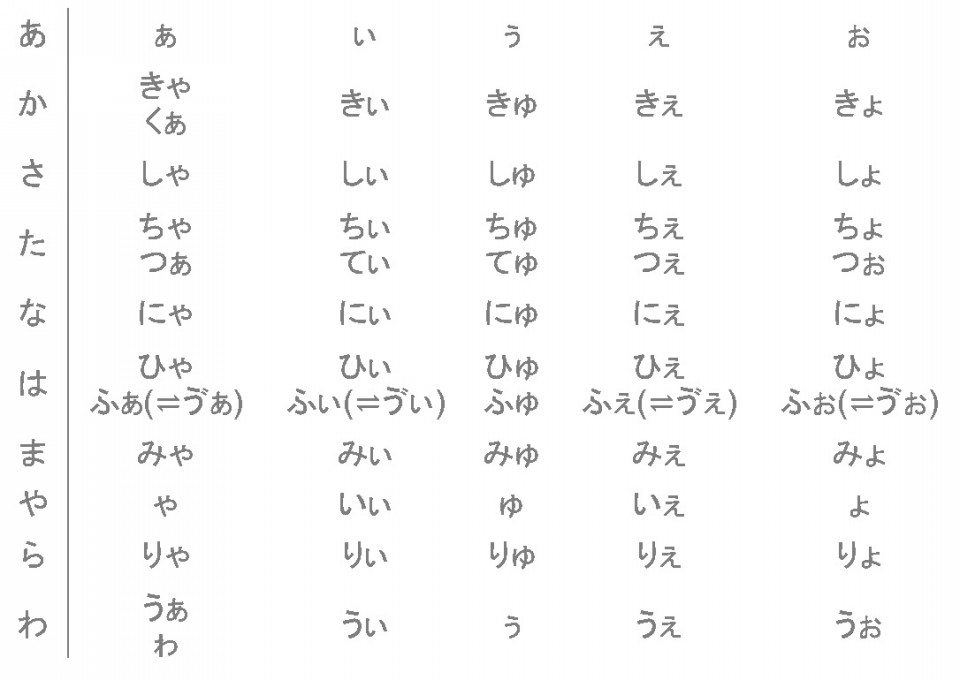 あ ぁ ぃ ぅ ぇ ぉ
か きゃ きぃ きゅ きぇ きょ
くぁ
さ しゃ しぃ しゅ しぇ しょ
た ちゃ ちぃ ちゅ ちぇ ちょ
つぁ てぃ てゅ つぇ つぉ
な にゃ にぃ にゅ にぇ にょ
は ひゃ ひぃ ひゅ ひぇ ひょ
ふぁ(⇌ゔぁ) ふぃ(⇌ゔぃ) ふゅ ふぇ(⇌ゔぇ) ふぉ(⇌ゔぉ)
ま みゃ みぃ みゅ みぇ みょ
や ゃ いぃ ゅ いぇ ょ
ら りゃ りぃ りゅ りぇ りょ
わ うぁ うぃ ぅ うぇ うぉ
ゎ